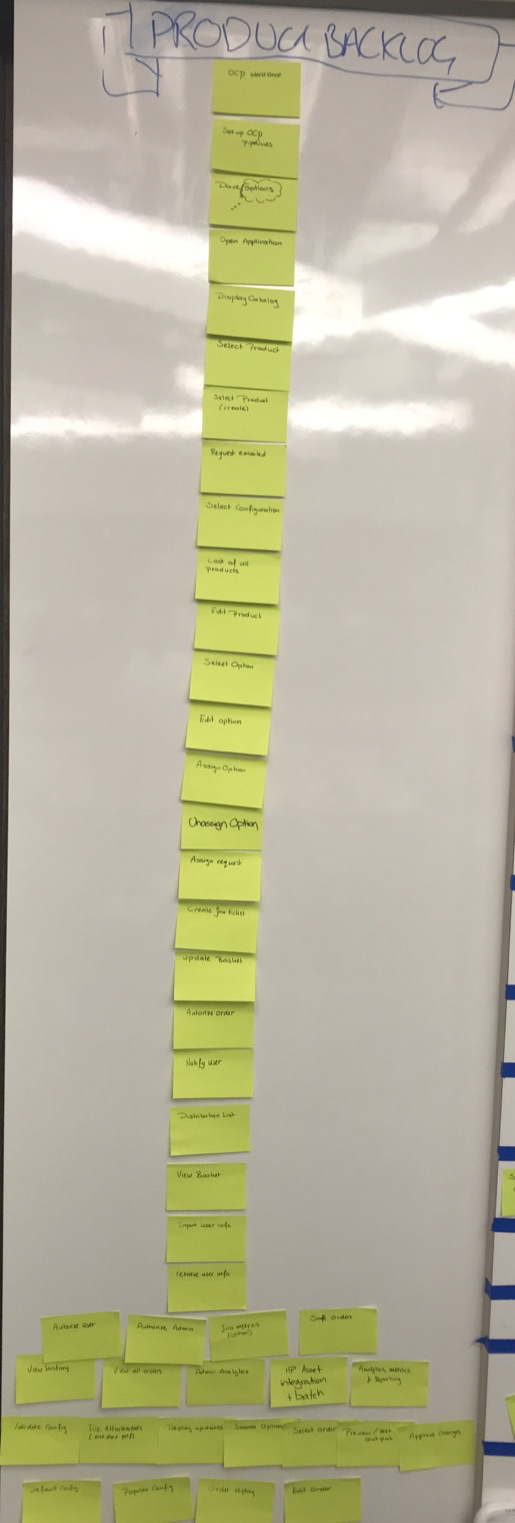 PRODUCT BACKLOG
OCP workshop
Setup OCP
pipelines
Dave options
Open Application
Display Catalog
Select Product
Select Product
(create)
Request emailed
Select Configuration
Cost of all
products
Edit Product
Select Option
Edit option
Assign Option
Unassign Option
Assign request
Create Jira ticket
update Basket
Authorise order
Notify user
Distribution List
View Basket
Import user info
retrieve user info
Authorise User
Authorise Admin
Jira metrics
(option)
Soft orders
View history
View all orders
Admin Analytics
HP Asset
integration
+ batch
Analytics metrics
& Reporting
Validate Config
File Attachments
Display updates
Search Options
Select order
Preview / test
output
Approve changes
Default Config
Propose Config
Order replay
Edit order